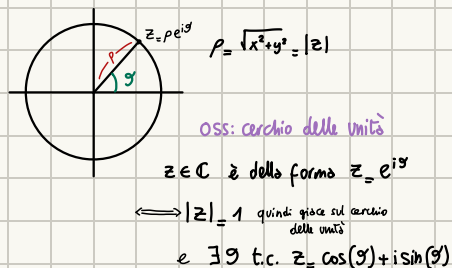 z=ρe^{iϑ}
ρ
ϑ
ρ=√x²+y² = |z|
OSS: cerchio delle unità
z∈ℂ è della forma z=e^{iϑ}
⟺ |z|=1 quindi giace sul cerchio
delle unità
e ∃ϑ t.c. z=cos(ϑ)+i sin(ϑ)